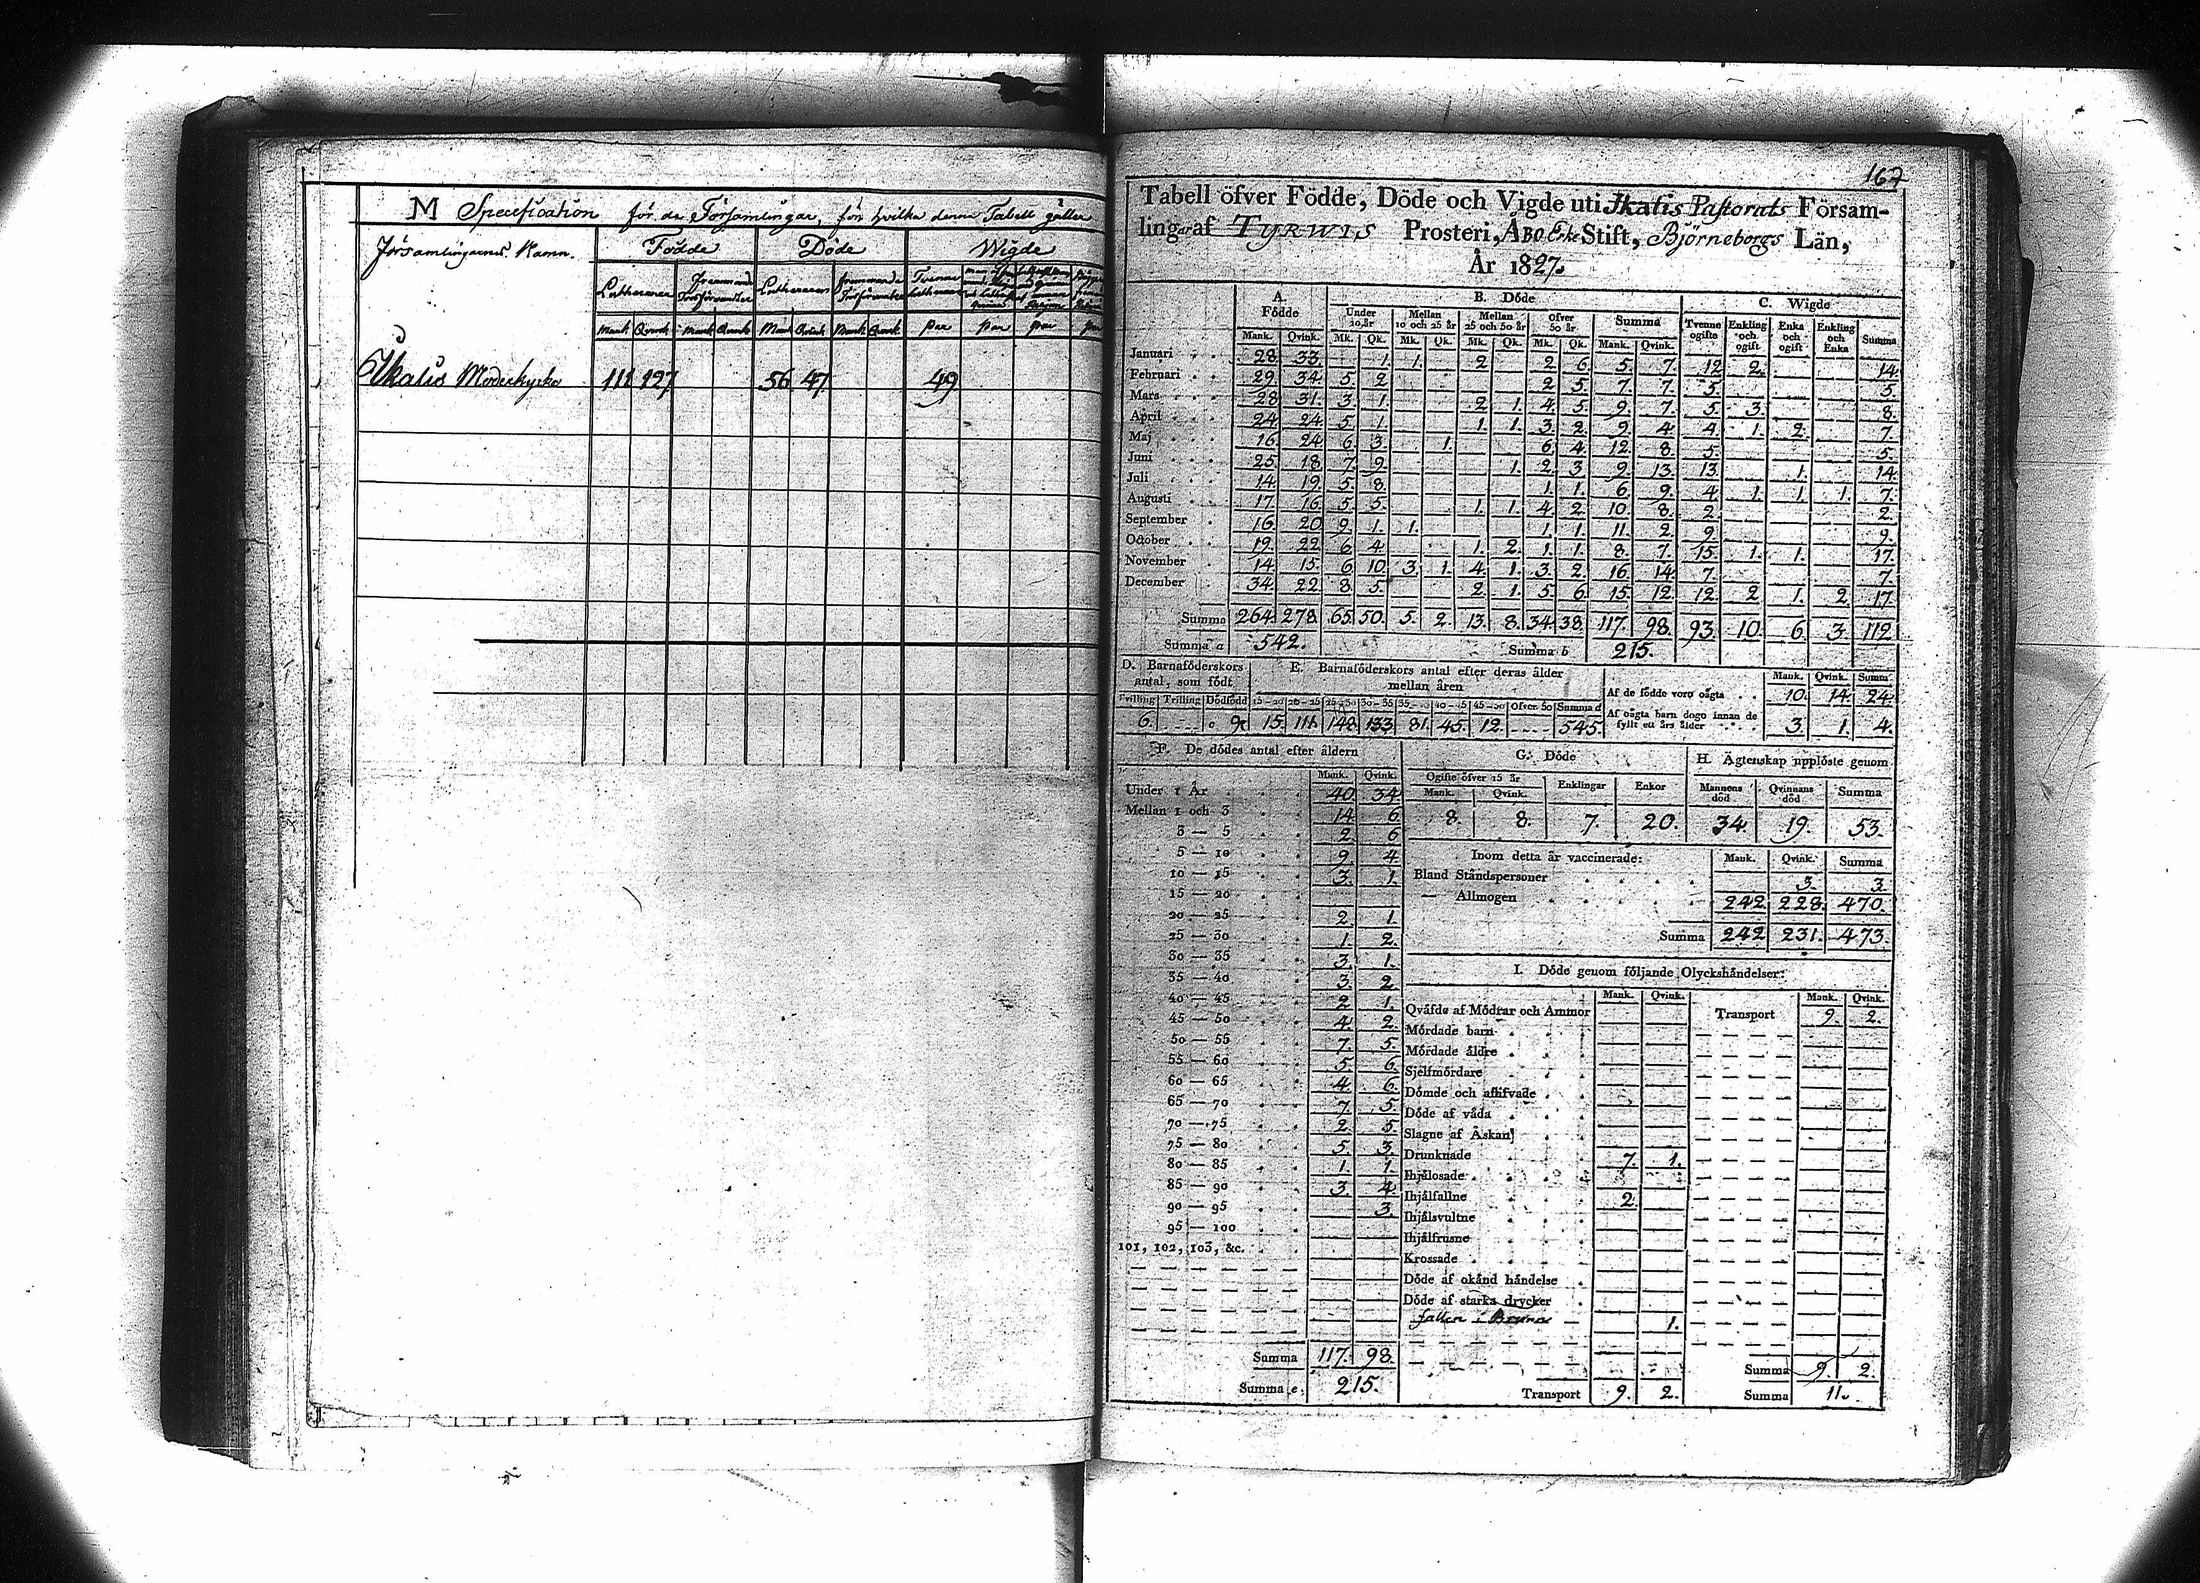 M Specification för de Församlingar, för hvilka denna Tabell gäller
Församlingarnes Namn.
Födde Döde Wigde
Lutheraner Lutheraner
Mank Qvink Mank Qvink Mank Qvink Mank Qvink Par Par Par
Ikalis Moderkyrka 111 127 56 47 49
167
Tabell öfver Födde, Döde och Vigde uti Ikalis Pastorats Församlingar af TYRWIS Prosteri, ÅBO Erke Stift, Björneborgs Län,
År 1827.
A. Födde B. Döde C. Wigde
Under 10 år Mellan 10 och 25 år Mellan 25 och 50 år Öfver 50 år Summa Tvenne ogifte Enkling och ogift Enka och ogift Enkling och Enka Summa
Mank. Qvink. Mk. Qk. Mk. Qk. Mk. Qk. Mk. Qk. Mank. Qvink.
Januari 28. 33. 1. 1. 2 2. 6. 5. 7. 12. 2. 14.
Februari 29. 34. 5. 2. 2. 5. 7. 7. 5. 5.
Mars 28. 31. 3. 1. 2. 1. 4. 5. 9. 7. 5. 3. 8.
April 24. 24. 5. 1. 1. 1. 3. 2. 9. 4. 4. 1. 2. 7.
Maj 16. 24. 6. 3. 1. 6. 4. 12. 8. 5. 5.
Juni 25. 18. 7. 9. 1. 2. 3. 9. 13. 13. 1. 14.
Juli 14. 19. 5. 8. 1. 1. 6. 9. 4. 1. 1. 1. 7.
Augusti 17. 16. 5. 5. 1. 1. 4. 2. 10. 8. 2. 2.
September 16. 20. 9. 1. 1. 1. 1. 11. 2. 9. 9.
October 19. 22. 6. 4. 1. 2. 1. 1. 8. 7. 15. 1. 1. 17.
November 14. 15. 6. 10. 3. 1. 4. 1. 3. 2. 16. 14. 7. 7.
December 34. 22. 8. 5. 2. 1. 5. 6. 15. 12. 12. 2. 1. 2. 17.
Summa 264. 278. 65. 50. 5. 2. 13. 8. 34. 38. 117. 98. 93. 10. 6. 3. 112.
Summa a 542. Summa b 215.
D. Barnaföderskors antal, som födt
Tvilling Trilling Dödfödd
6. 9.
E. Barnaföderskors antal efter deras ålder mellan åren
15-20 20-25 25-30 30-35 35-40 40-45 45-50 Öfver 50 Summa d
15. 111. 148. 133. 81. 45. 12. 545.
Mank. Qvink. Summ.
Af de födde voro oägta 10. 14. 24.
Af oägta barn dogo innan de fyllt ett års ålder 3. 1. 4.
F. De dödes antal efter åldern
Mank. Qvink.
Under 1 År 40. 34.
Mellan 1 och 3 14. 6.
3 — 5 2. 6
5 — 10 9. 4
10 — 15 3. 1.
15 — 20
20 — 25 2. 1.
25 — 30 1. 2.
30 — 35 3. 1.
35 — 40 3. 2
40 — 45 2. 1.
45 — 50 4. 2.
50 — 55 7. 5.
55 — 60 5. 6.
60 — 65 4. 6.
65 — 70 7. 5.
70 — 75 2. 5.
75 — 80 5. 3.
80 — 85 1. 1.
85 — 90 3. 4.
90 — 95 3.
95 — 100
101, 102, 103, &c.
Summa 117. 98.
Summa e. 215.
G. Döde
Ogifte öfver 15 år Enklingar Enkor
Mank. Qvink.
8. 8. 7. 20.
H. Ägtenskap upplöste genom
Mannens död Qvinnans död Summa
34. 19. 53.
Inom detta år vaccinerade: Mank. Qvink. Summa
Bland Ståndspersoner 3. 3.
— Allmogen 242. 228. 470.
Summa 242 231. 473.
I. Döde genom följande Olyckshändelser:
Mank. Qvink. Mank. Qvink.
Qväfde af Mödrar och Ammor Transport 9. 2.
Mördade barn
Mördade äldre
Sjelfmördare
Dömde och aflifvade
Döde af våda
Slagne af Åskan
Drunknade 7. 1.
Ihjälosade
Ihjälfallne 2.
Ihjälsvultne
Ihjälfrusne
Krossade
Döde af okänd händelse
Döde af starka drycker
fallen i Brunn 1.
Summa 9. 2.
Transport 9. 2. Summa 11.